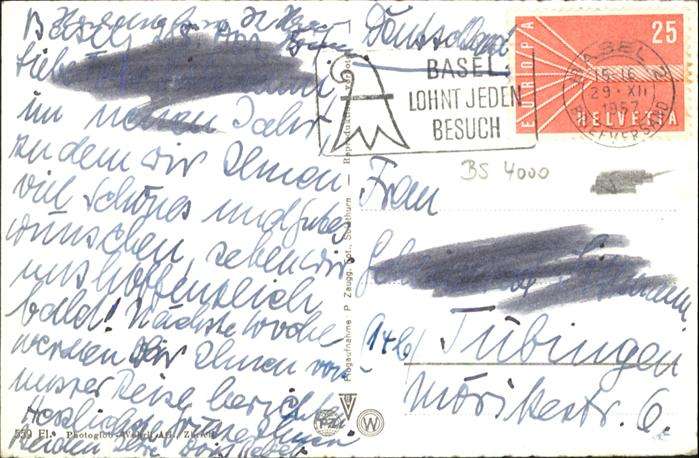 Basel
im neuen Jahr,
zu dem wir Ihnen
viel Schönes und Gutes
wünschen, sehen wir
uns hoffentlich
bald! Nächste Woche
werden wir Ihnen von
unserer Reise berichten
Herzliche Grüsse Ihnen
beiden Ihre
559 Fl. Photoglob-Wehrli A.G., Zürich
Flugaufnahme P. Zaugg, Solothurn — Reproduktion verboten
Deutschland
BASEL
LOHNT JEDEN
BESUCH
EUROPA
25
HELVETIA
BASEL 2
15-16
29.XII
1957
BRIEFVERSAND
BS 4000
Frau
14b/ Tübingen
Mörikestr. 6.
PZ
W